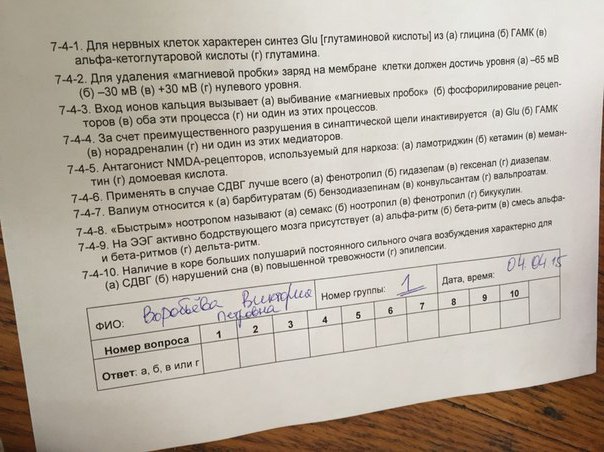 7-4-1. Для нервных клеток характерен синтез Glu [глутаминовой кислоты] из (а) глицина (б) ГАМК (в)
альфа-кетоглутаровой кислоты (г) глутамина.
7-4-2. Для удаления «магниевой пробки» заряд на мембране клетки должен достичь уровня (а) –65 мВ
(б) –30 мВ (в) +30 мВ (г) нулевого уровня.
7-4-3. Вход ионов кальция вызывает (а) выбивание «магниевых пробок» (б) фосфорилирование рецеп-
торов (в) оба эти процесса (г) ни один из этих процессов.
7-4-4. За счет преимущественного разрушения в синаптической щели инактивируется (а) Glu (б) ГАМК
(в) норадреналин (г) ни один из этих медиаторов.
7-4-5. Антагонист NMDA-рецепторов, используемый для наркоза: (а) ламотриджин (б) кетамин (в) меман-
тин (г) домоевая кислота.
7-4-6. Применять в случае СДВГ лучше всего (а) фенотропил (б) гидазепам (в) гексенал (г) диазепам.
7-4-7. Валиум относится к (а) барбитуратам (б) бензодиазепинам (в) конвульсантам (г) вальпроатам.
7-4-8. «Быстрым» ноотропом называют (а) семакс (б) ноотропил (в) фенотропил (г) бикукулин.
7-4-9. На ЭЭГ активно бодрствующего мозга присутствует (а) альфа-ритм (б) бета-ритм (в) смесь альфа-
и бета-ритмов (г) дельта-ритм.
7-4-10. Наличие в коре больших полушарий постоянного сильного очага возбуждения характерно для
(а) СДВГ (б) нарушений сна (в) повышенной тревожности (г) эпилепсии.
ФИО: Воробьёва Виктория Петровна Номер группы: 1 Дата, время: 04.04.15
Номер вопроса 1 2 3 4 5 6 7 8 9 10
Ответ: а, б, в или г